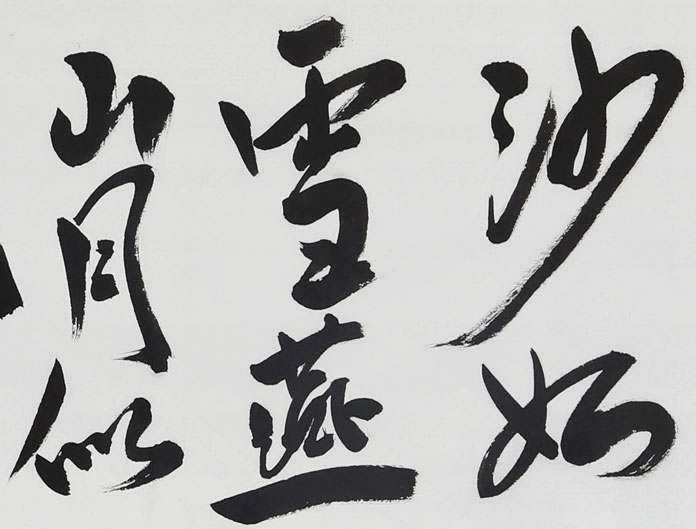 沙如
雪燕
山月似